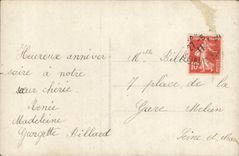 Heureux anniver
saire à notre
sœur chérie
Renée
Madeleine
Georgette Billard
Mlle Billard
7 place de la
Gare Melun
Seine et Marne
10